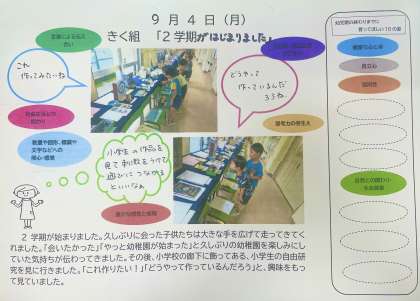 9月4日(月)
きく組 「2学期がはじまりました」
言葉による伝え
合い
これ
作ってみたいね
どうやって
作っているんだ
ろうね。
思考力の芽生え
数量や図形、標識や
文字などへの
関心・感覚
小学生の作品を
見て刺激をうけて
遊びにつなげる
といいなぁ
豊かな感性と表現
幼児期の終わりまでに
育ってほしい10の姿
健康な心と体
自立心
協同性
自然との関わり・
生命尊重
2学期が始まりました。久しぶりに会った子供たちは大きな手を広げて走ってきてく
れました。「会いたかった」「やっと幼稚園が始まった」と久しぶりの幼稚園を楽しみにし
ていた気持ちが伝わってきました。その後、小学校の廊下に飾ってある、小学生の自由研
究を見に行きました。「これ作りたい!」「どうやって作っているんだろう」と、興味をもっ
て見ていました。